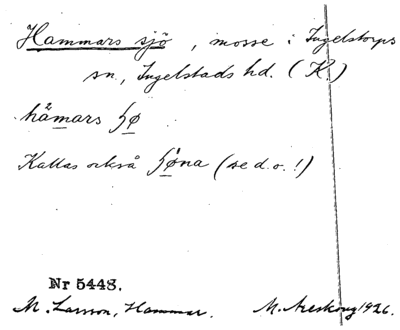 Hammars sjö, mosse i Ingelstorps
sn, Ingelstads hd. (K.)
hämars ʃø
Kallas också ʃøna (se d.o.!)
Nr 5448.
M. Larsson, Hammar. M. Areskoug 1926.